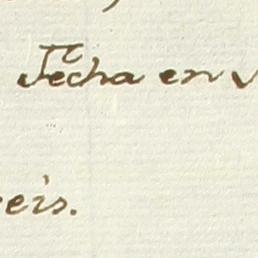 Fecha en
eis.